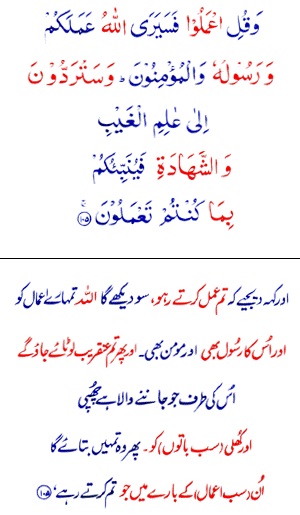 وَقُلِ اعْمَلُوْا فَسَيَرَى اللهُ عَمَلَكُمْ
وَرَسُوْلُهٗ وَالْمُؤْمِنُوْنَ ؕ وَسَتُرَدُّوْنَ
اِلٰى عٰلِمِ الْغَيْبِ
وَالشَّهَادَةِ فَيُنَبِّئُكُمْ
بِمَا كُنْتُمْ تَعْمَلُوْنَ ۚ﴿۱۰۵﴾
اور کہہ دیجیے کہ تم عمل کرتے رہو، سو دیکھے گا اللہ تمہارے اعمال کو
اور اُس کا رسُول بھی اور مؤمن بھی۔ اور پھر تم عنقریب لوٹائے جاؤ گے
اُس کی طرف جو جاننے والا ہے چُھپی
اور کُھلی (سب باتوں) کو۔ پھر وہ تمہیں بتائے گا
اُن (سب اعمال) کے بارے میں جو تم کرتے رہے، ﴿۱۰۵﴾